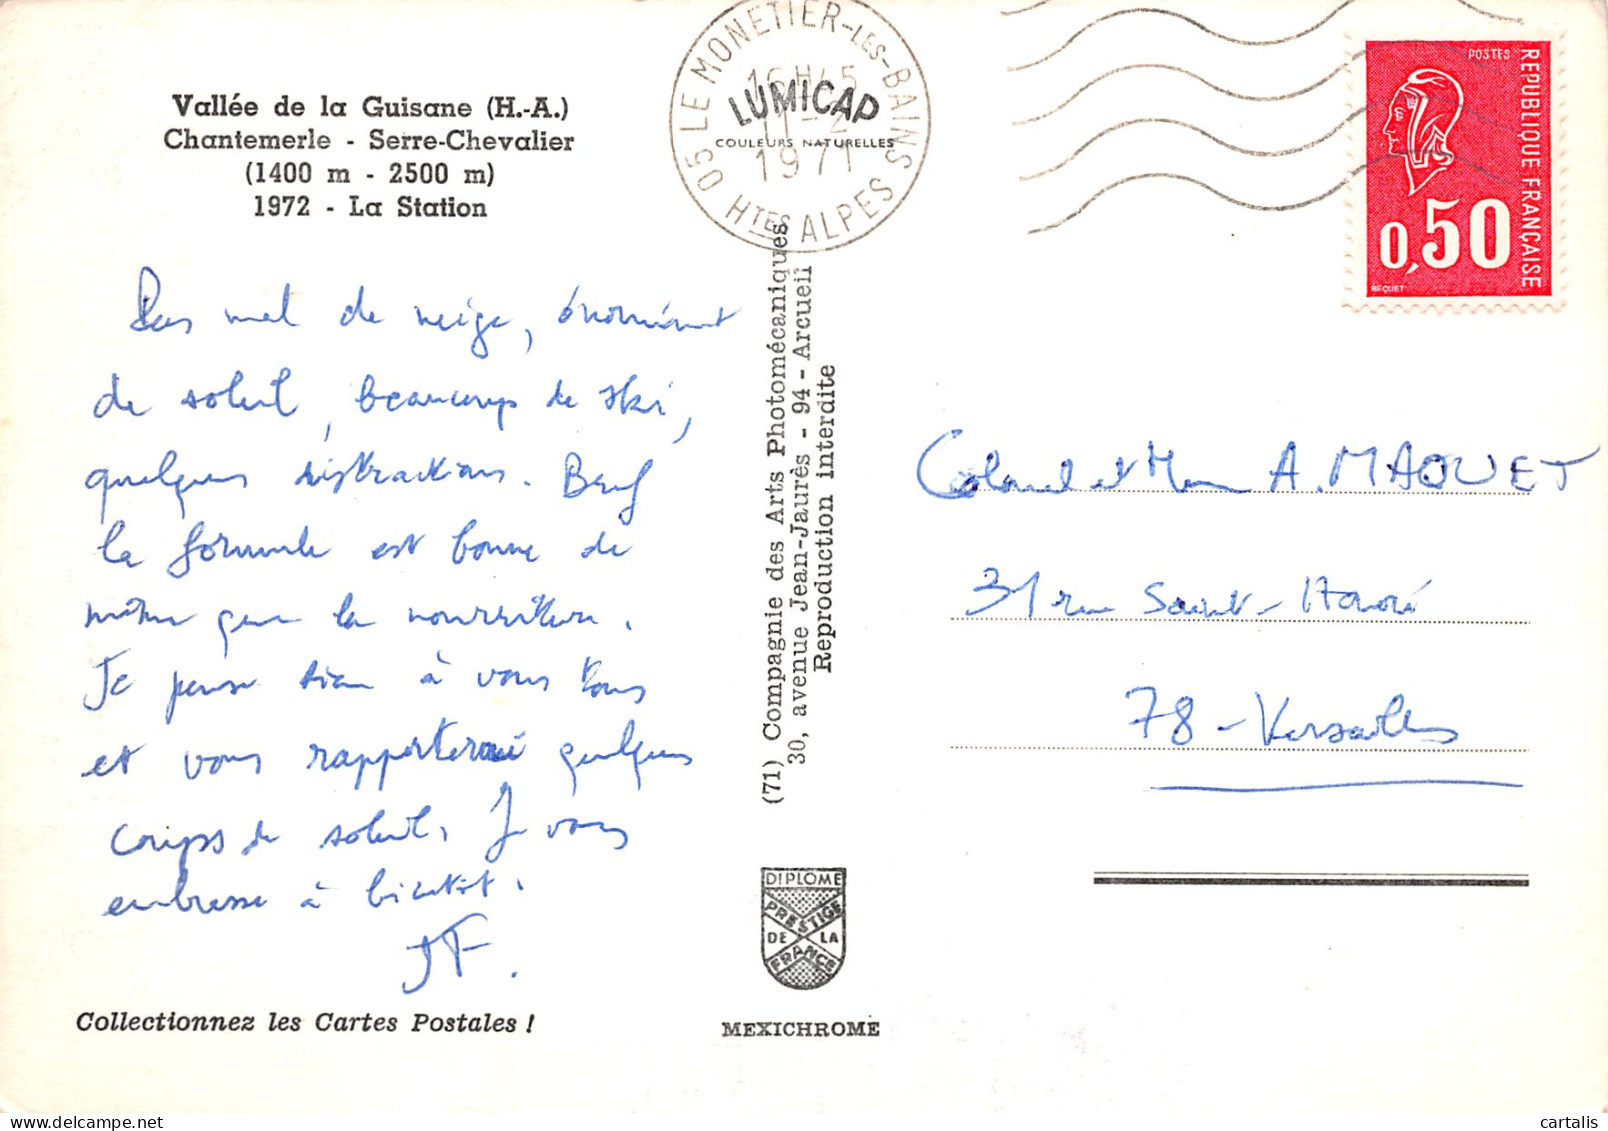 Vallée de la Guisane (H.-A.)
Chantemerle - Serre-Chevalier
(1400 m - 2500 m)
1972 - La Station
Pas mal de neige, énormément
de soleil, beaucoup de ski,
quelques distractions. Bref
la formule est bonne de
même que la nourriture.
Je pense bien à vous tous
et vous rapporterai quelques
coups de soleil. Je vous
embrasse à bientôt.
JF.
Collectionnez les Cartes Postales !
05 LE MONETIER-LES-BAINS
16H45
11-2
1971
HTES ALPES
LUMICAP
COULEURS NATURELLES
(71) Compagnie des Arts Photomécaniques
30, avenue Jean-Jaurès - 94 - Arcueil
Reproduction interdite
DIPLOME
PRESTIGE
DE LA
FRANCE
MEXICHROME
POSTES
REPUBLIQUE FRANÇAISE
0,50
BEQUET
Colonel et Mme A. MAOUET
31 rue Saint-Honoré
78 - Versailles
cartalis